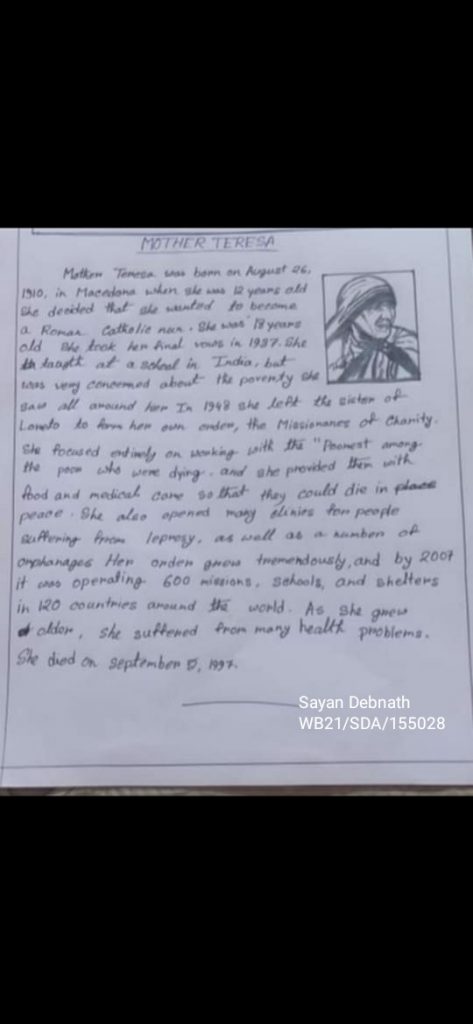 MOTHER TERESA
Mother Teresa was born on August 26,
1910, in Macedona when she was 12 years old
She decided that she wanted to become
a Roman Catholic nun. She was 18 years
old She took her final vows in 1937. She
taught at a school in India, but
was very concerned about the poverty she
saw all around her In 1948 she left the sister of
Loreto to form her own order, the Missionaries of Charity.
She focused entirely on working with the "Poorest among
the poor who were dying. and she provided them with
food and medical care so that they could die in place
peace. She also opened many clinics for people
suffering from leprosy, as well as a number of
orphanages Her order grew tremendously, and by 2007
it was operating 600 missions, schools, and shelters
in 120 countries around the world. As she grew
older, she suffered from many health problems.
She died on September 5, 1997.
Sayan Debnath
WB21/SDA/155028